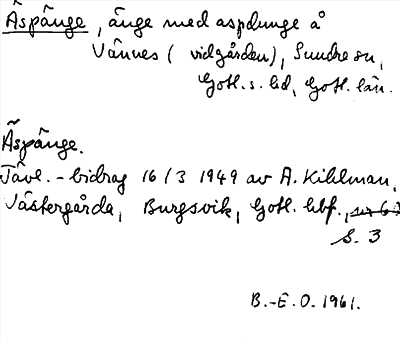 Äspänge, änge med aspdunge å
Vännes (vidgården), Sundre sn,
Gotl. s. hd, Gotl. län.
Äspänge.
Tävl.-bidrag 16/3 1949 av A. Kihlman,
Västergårda, Burgsvik, Gotl. hbf.,
S. 3
B.-E. O. 1961.